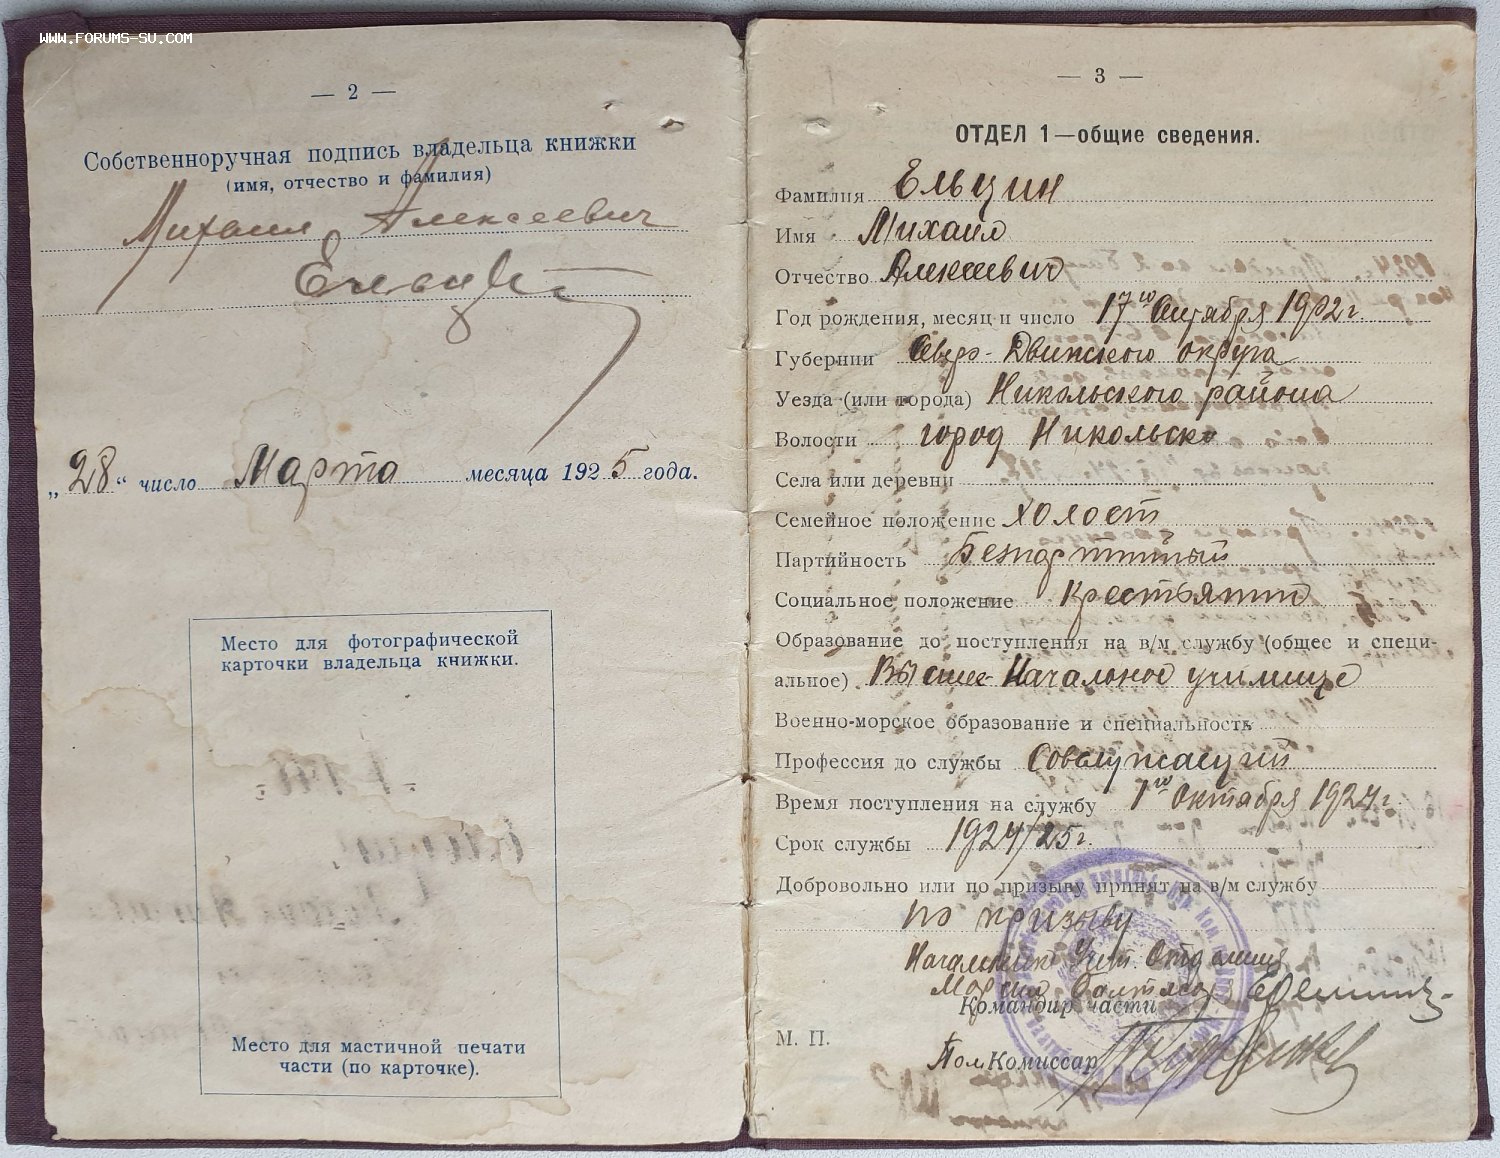 WWW.FORUMS-SU.COM
— 2 —
Собственноручная подпись владельца книжки
(имя, отчество и фамилия)
Михаил Алексеевич
Ельцин
„28“ число Марта месяца 1925 года.
Место для фотографической
карточки владельца книжки.
Место для мастичной печати
части (по карточке).
— 3 —
ОТДЕЛ 1—общие сведения.
Фамилия Ельцин
Имя Михаил
Отчество Алексеевич
Год рождения, месяц и число 17го Октября 1902 г.
Губернии Северо-Двинского округа
Уезда (или города) Никольского района
Волости город Никольск
Села или деревни
Семейное положение холост
Партийность Безпартийный
Социальное положение Крестьянин
Образование до поступления на в/м службу (общее и специ-
альное) Высшее Начальное училище
Военно-морское образование и специальность
Профессия до службы Совслужащий
Время поступления на службу 1го Октября 1924 г.
Срок службы 1924/25 г.
Добровольно или по призыву принят на в/м службу
по призыву
Начальник
Командир части
М. П.
Пом Комиссар